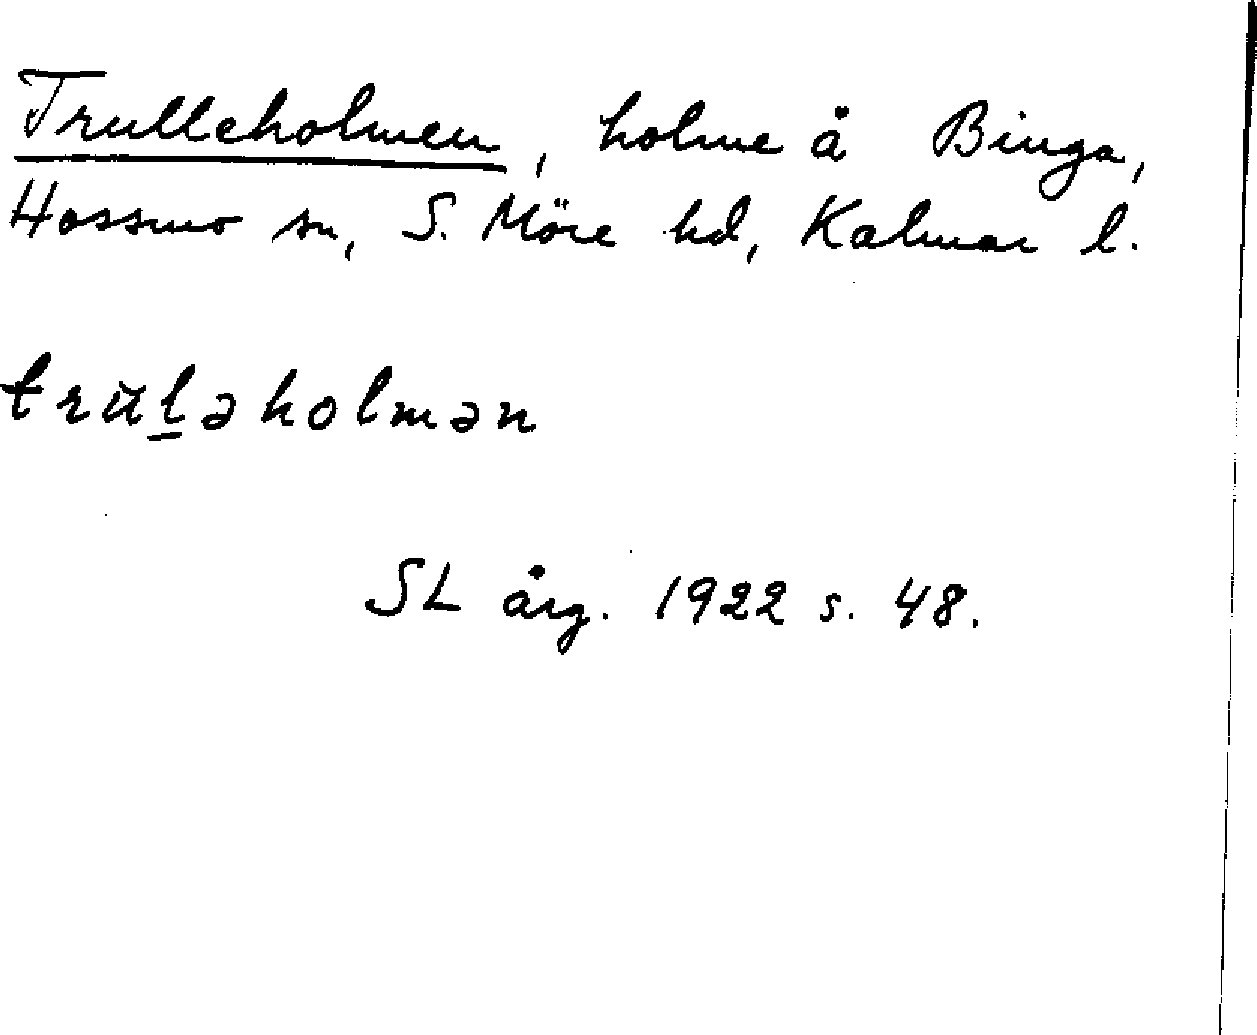 Trulleholmen, holme å Binga,
Hossmo sn, S. Möre hd, Kalmar l.
trŭl̠əholmən
SL årg. 1922 s. 48.